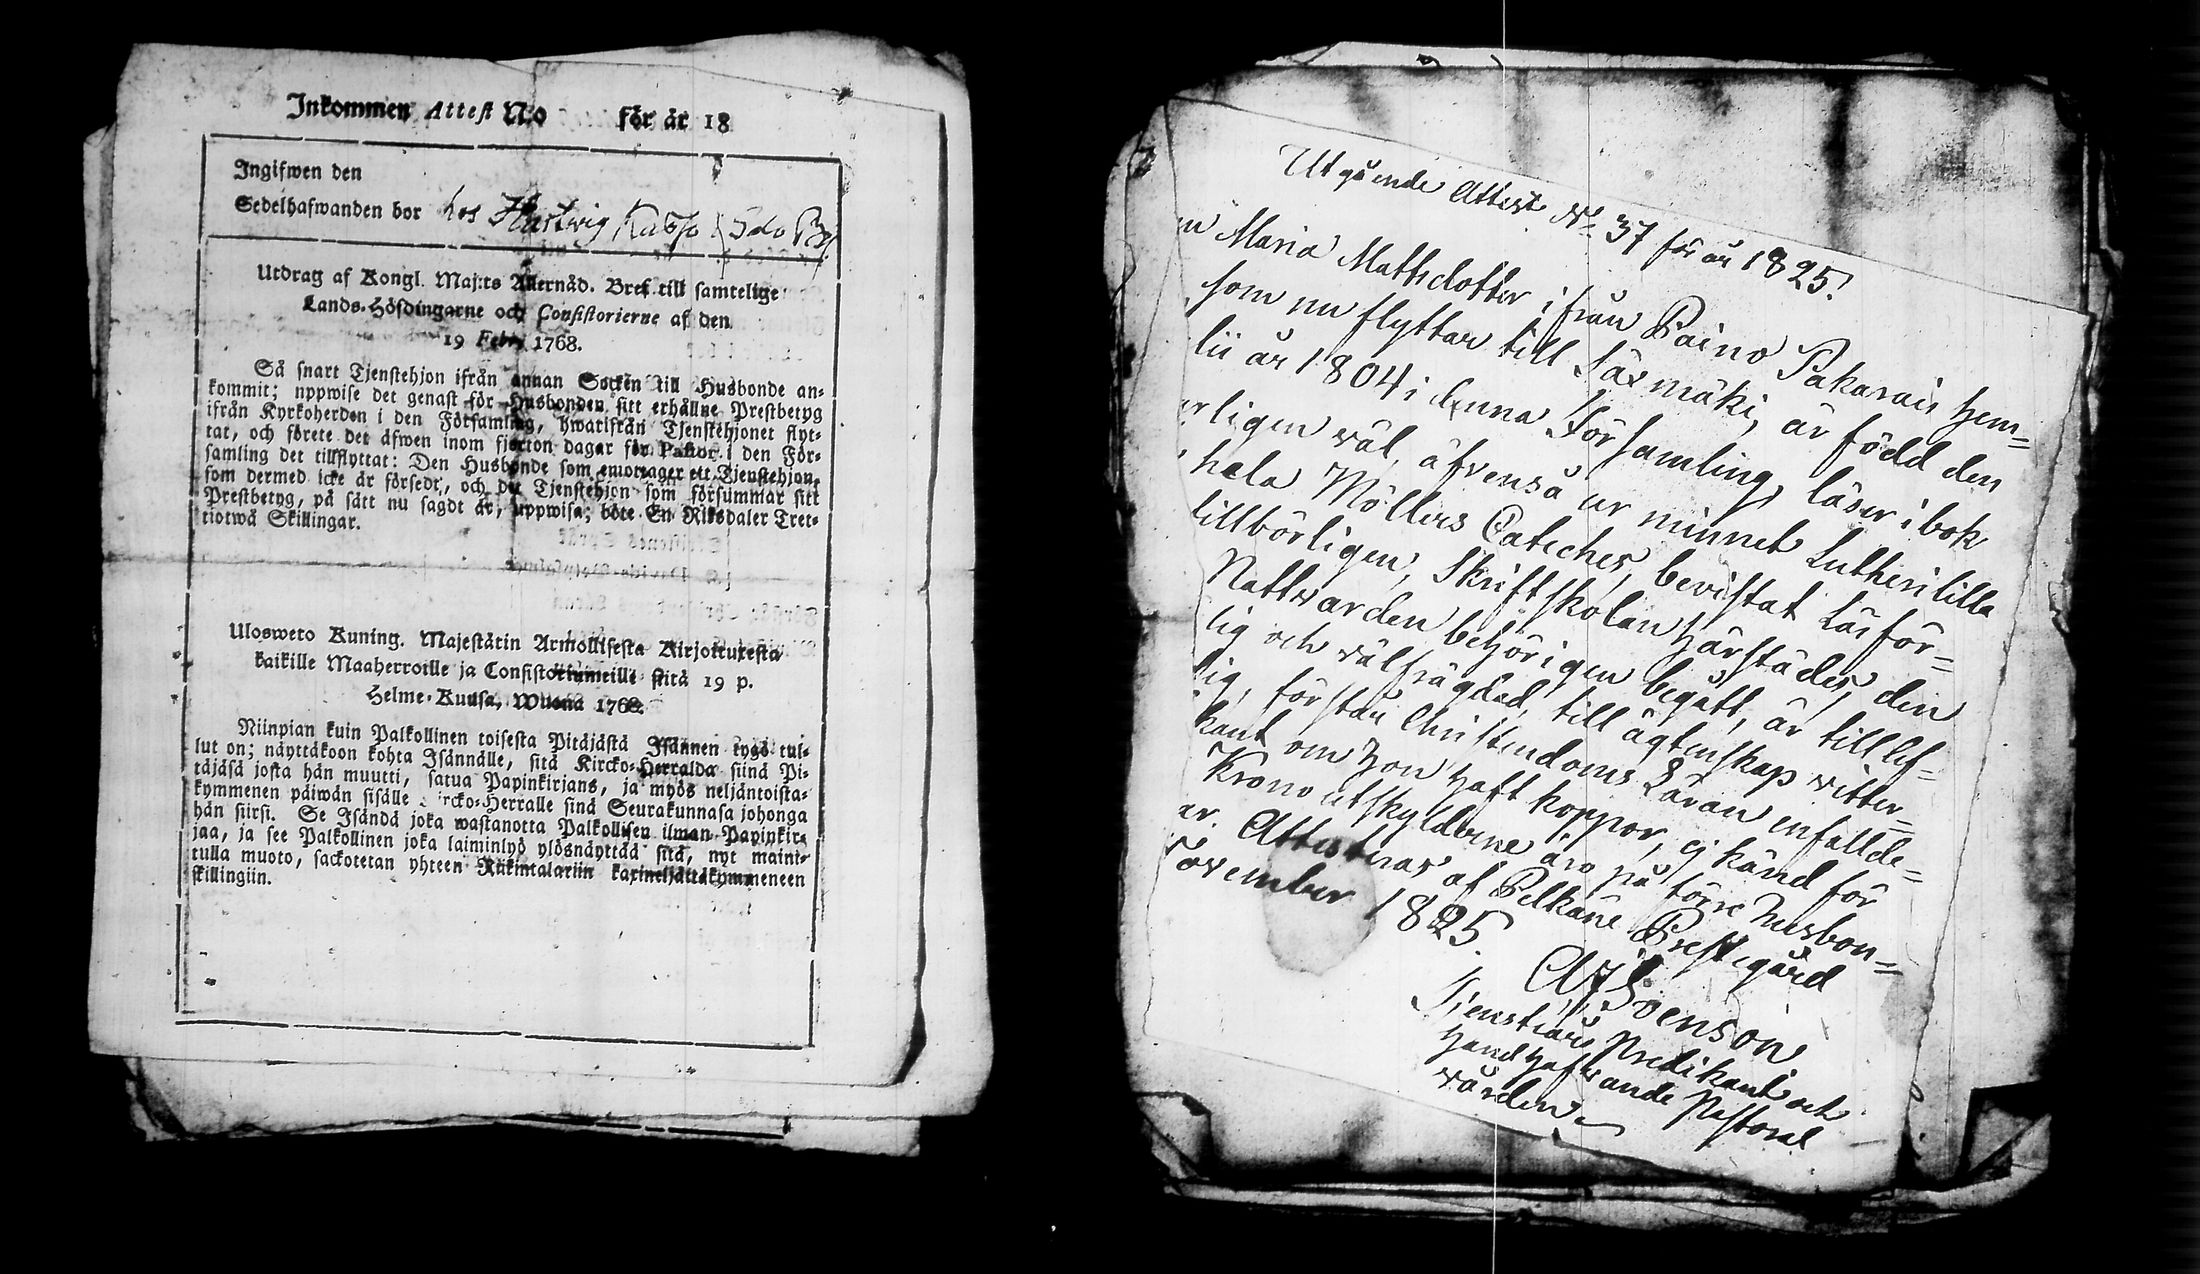 Inkommen Attest No för år 18
Ingifwen den
Sedelhafwanden bor hos Hartwig
Utdrag af Kongl. Maj:ts Allernåd. Bref till samtelige
Lands-Höfdingarne och Consistorierne af den
19 Febr. 1768.
Så snart Tjenstehjon ifrån annan Socken till Husbonde an-
kommit; uppwise det genast för Husbonden sitt erhållne Prestbetyg
ifrån Kyrkoherden i den Församling, hwarifrån Tjenstehjonet flyt-
tat, och förete det äfwen inom fjorton dagar för Pastor i den För-
samling det tillflyttat: Den Husbonde som emottager ett Tjenstehjon,
som dermed icke är försedt, och det Tjenstehjon som försummar sitt
Prestbetyg, på sätt nu sagdt är, uppwisa; böte En Riksdaler Tret-
tiotwå Skillingar.
Ulosweto Kuning. Majestätin Armollisesta Kirjoituxesta
kaikille Maaherroille ja Consistoriumeille siitä 19 p.
Helme-Kuusa, Wuona 1768.
Niinpian kuin Palkollinen toisesta Pitäjästä Isännen tygö tul-
lut on; näyttäkoon kohta Isännälle, sitä Kircko-Herralda siinä Pi-
täjäsä josta hän muutti, saatua Papinkirjans, ja myös neljäntoista-
kymmenen päiwän sisälle Kircko-Herralle siinä Seurakunnasa johonga
hän siirsi. Se Isändä joka wastanotta Palkollisen ilman Papinkir-
jaa, ja see Palkollinen joka laiminlyö ylösnäyttää sitä, nyt maini-
tulla muoto, sackotetan yhteen Riikintalariin kaxineljättäkymmeneen
skillingiin.
Utgående Attest No 37 för år 1825.
Maria Mattsdotter ifrån Paino Pakarais hem=
som nu flyttar till Säxmäki, är född den
lii år 1804 i denna Församling, läser i bok
rligen väl, äfvenså ur minnet Lutheri lilla
hela Möllers Cateches, bevistat Läsför=
tillbörligen, Skriftskolan härstädes, den
Nattvarden behörigen begått, är till lef=
lig och välfrägdad, till ägtenskap witter=
lig, förstår Christendoms Läran enfallde=
kant om hon haft koppor, ej känd för
Krono utskylderne äro på förre husbon=
ar. Attesteras af Pelkäne Prestegård
ovember 1825.
Svenson
Tjenstgör. Predikant och
handhafvande Pastoral
vården